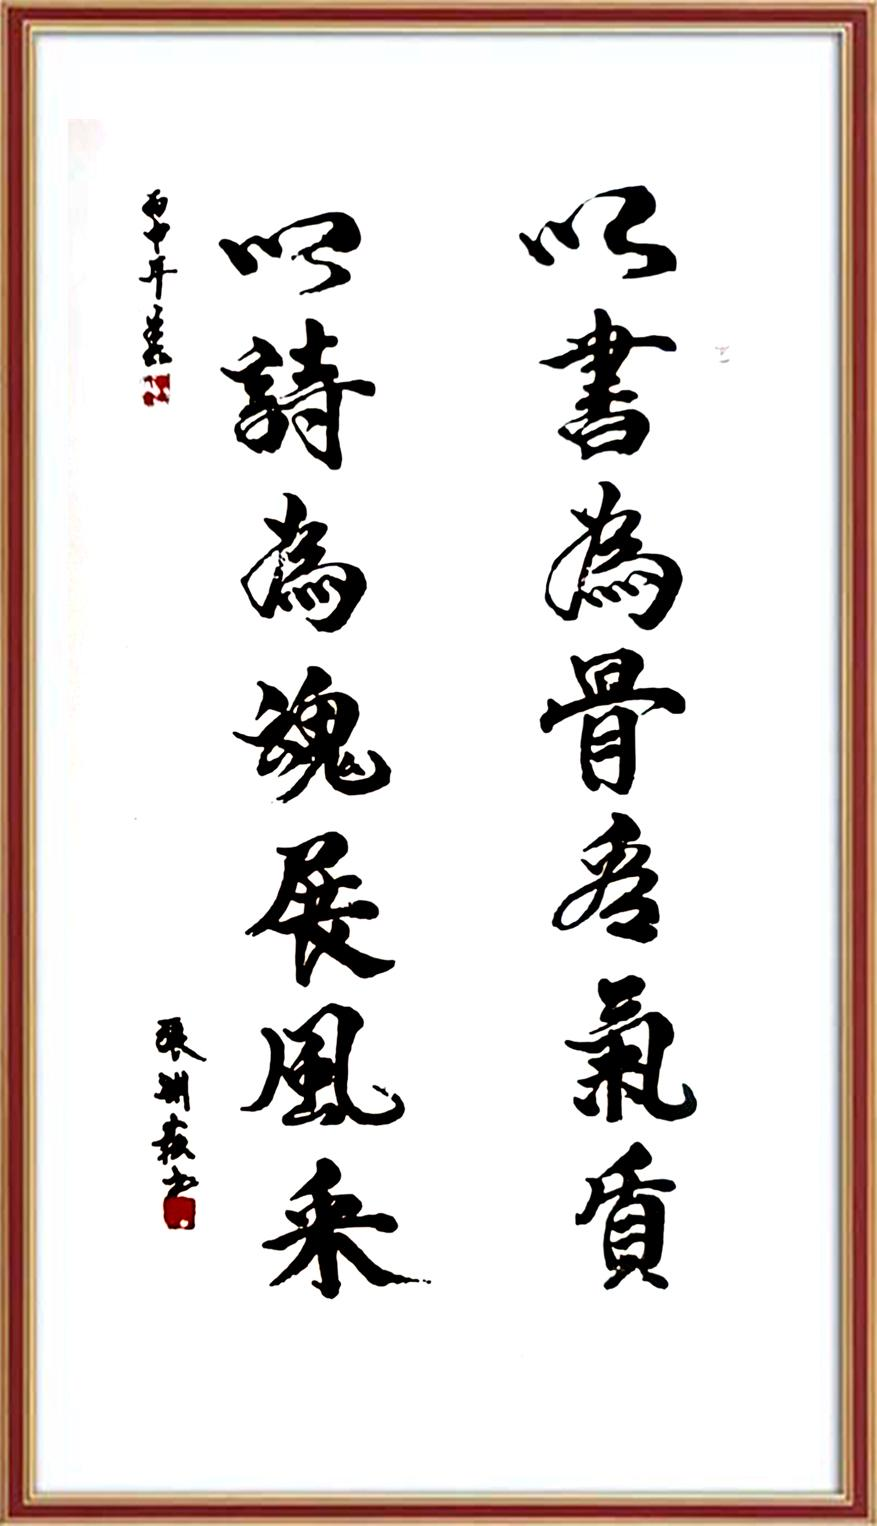 以書為骨 氣質
以詩為魂展風采
丙申年
張 書